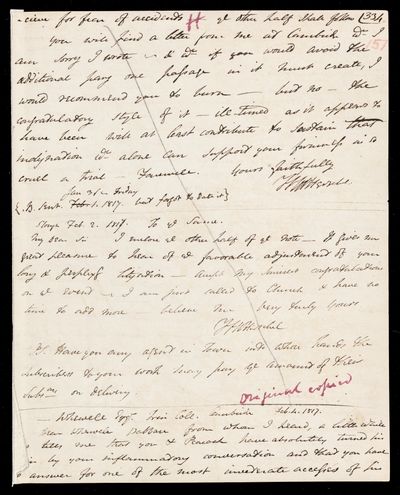 -ceive for fear of accidents H ye other half shall follow 334
You will find a letter from me at Cambridge wh. I 151
am sorry I wrote — & wd. if you would avoid the
additional pang one passage in it must create, I
would recommend you to burn — but no — the
congratulatory style of it — ill-timed as it appears to
have been will at least contribute to sustain that
indignation wh. alone can support your firmness in so
cruel a trial — Farewell. Yours faithfully
JFWHerschel
Jan 31 — Friday
{B. Sent Feb. 1. 1817. but forgot to date it}
Slough Feb. 2. 1817. To ye Same.
My dear Sir I inclose ye other half of ye note — It gives me
great pleasure to hear of ye favorable adjustment of your
long & perplexg litigation — accept my sincerest congratulations
on ye event — I am just called to Church & have no
time to add more believe me very truly yours
JFWHerschel
P.S. Have you any agent in Town into whose hands the
subscribers to your work may pay ye remaind of their
Subsns. on delivery.
Original copied
— Whewell Esqr. Trin: Coll. Cambridge Feb. 4. 1817.
Dear Whewell from whom I heard, a little while
tells me that you & have absolutely turned his
by your inflammatory conversation and that you have
answer for one of the most inveterate accesses of his